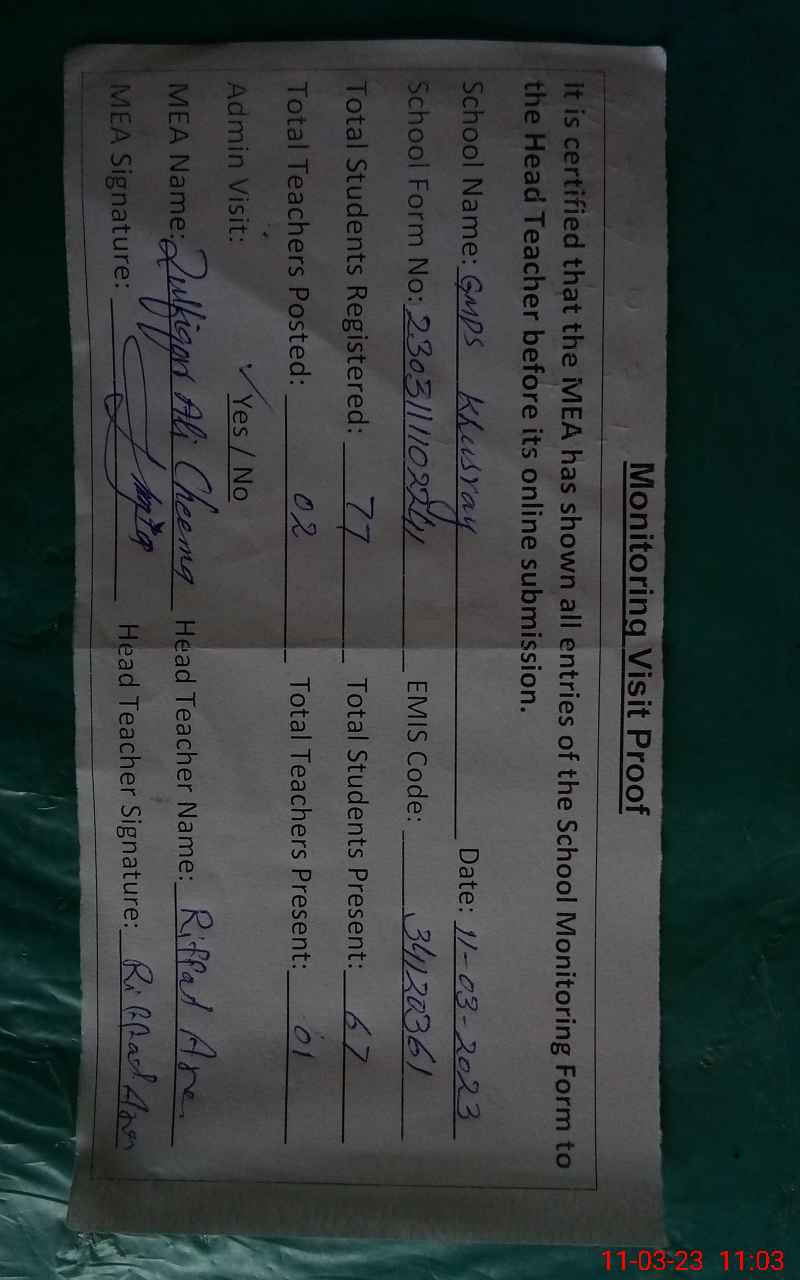 Monitoring Visit Proof
It is certified that the MEA has shown all entries of the School Monitoring Form to
the Head Teacher before its online submission.
School Name: GMPS Khusray Date: 11-03-2023
School Form No: EMIS Code: 34120361
Total Students Registered: 77 Total Students Present: 67
Total Teachers Posted: 02 Total Teachers Present: 01
Admin Visit: ✓ Yes / No
MEA Name: Zulfiqar Ali Cheema Head Teacher Name: Riffad
MEA Signature: Head Teacher Signature: Riffad
11-03-23 11:03